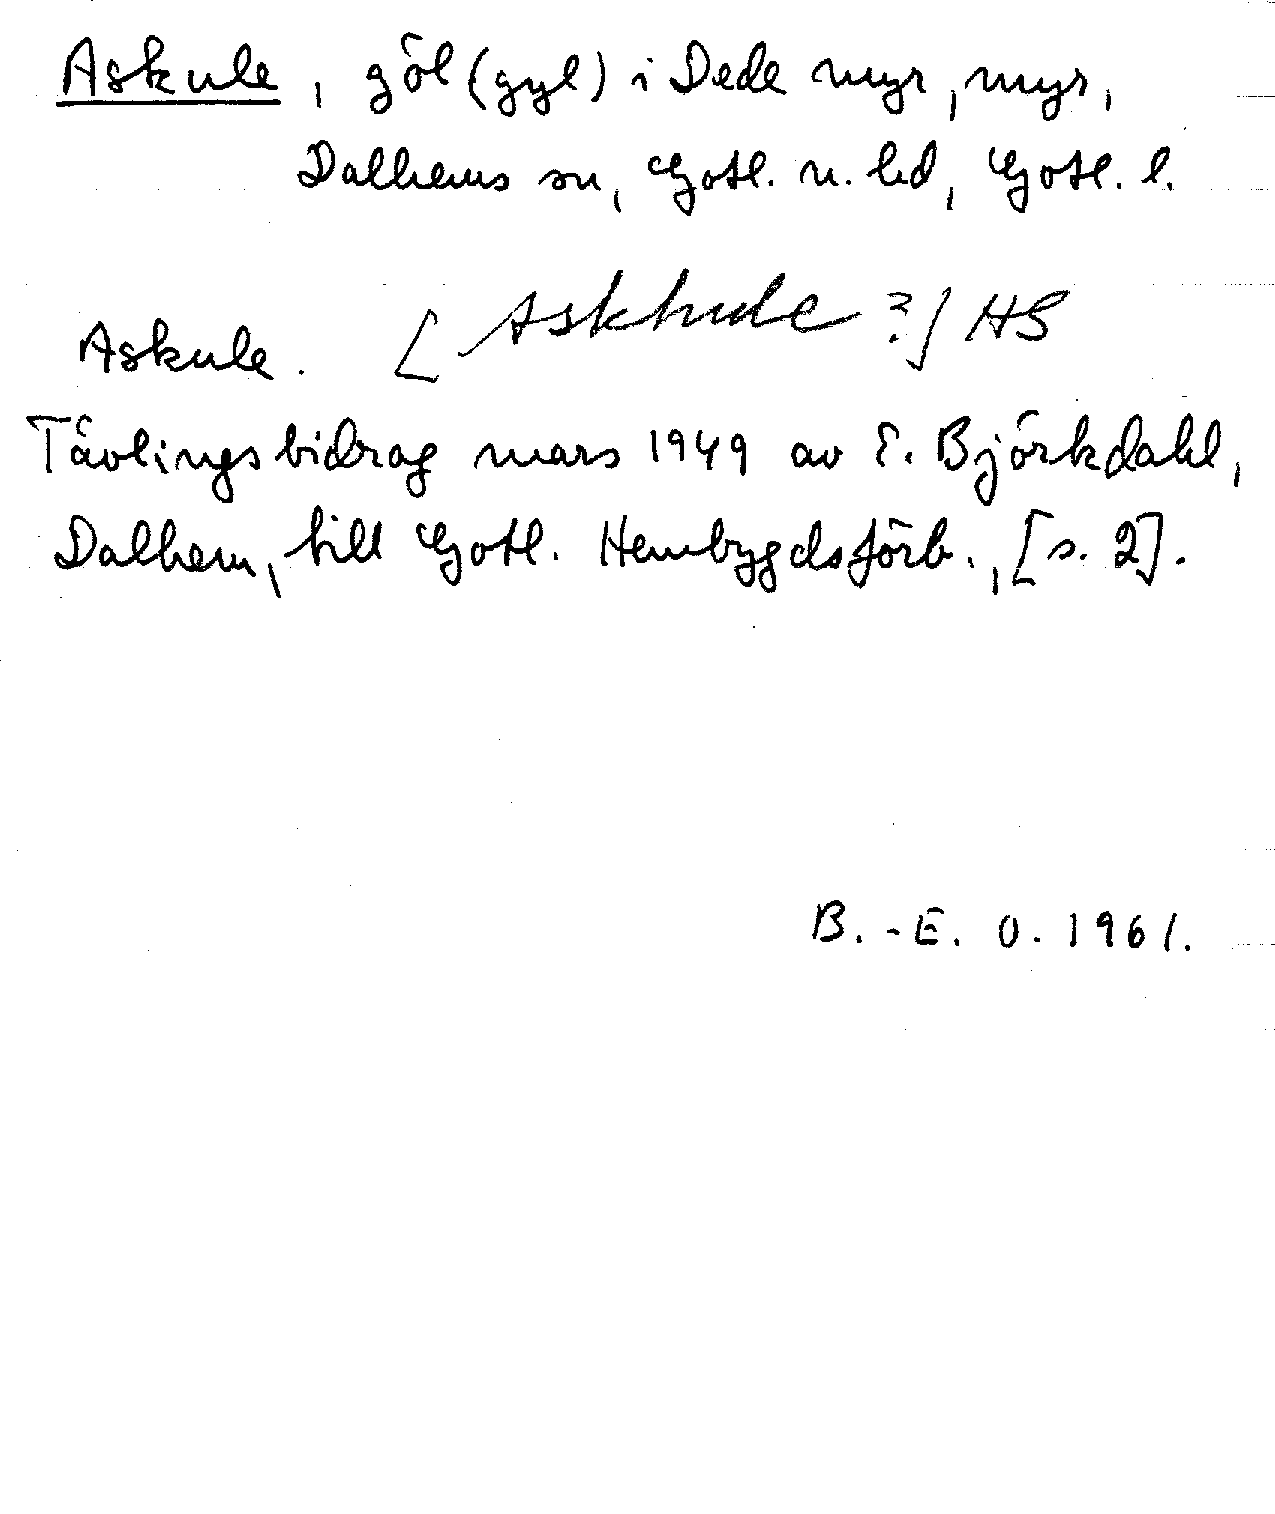 Askule, göl (gyl) i Dede myr, myr,
Dalhems sn, Gotl. n. hd, Gotl. l.
Askule. [Askhule ?] HS
Tävlingsbidrag mars 1949 av E. Björkdahl,
Dalhem, till Gotl. Hembygdsförb., [s. 2].
B.-E. O. 1961.